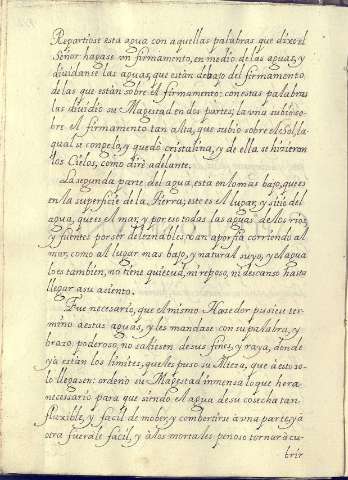 Repartiose esta agua con aquellas palabras que dixo el
Señor hagase un firmamento, en medio de las aguas, y
dividanse las aguas, que estàn debajo del firmamento
de las que estàn sobre el firmamento: con estas palabras
las dividio su Magestad en dos partes; la una subió so-
bre el firmamento tan alta, que subió sobre el Sol, la
qual se congelo, y quedó cristalina, y de ella se hizieron
los Cielos, como diré adelante.
La segunda parte del agua, esta en lo mas bajo, que es
en la superficie de la Tierra; este es el lugar, y sitio del
agua, que es el mar, y por eso todas las aguas de los rios
y fuentes por ser deleznables van aporfia corriendo al
mar, como al lugar mas bajo, y natural suyo, y el agua
lo es tambien, no tiene quietud, ni reposo, ni descanso hasta
llegar a su asiento.
Fue necesario, que el mismo Hasedor pusiese ter-
mino a estas aguas, y les mandase con su palabra, y
brazo poderoso, no saliesen de sus fines, y raya, donde
ya están los limites, que les puso su Alteza, que a esto so-
lo llegasen: ordenó su Magestad inmensa lo que hera
necessario para que siendo el agua de su cosecha tan
fluxible, y facil de mober, y combertirse à una parte, y a
otra fuerale facil, y à los mortales penoso tornar à cu-
brir